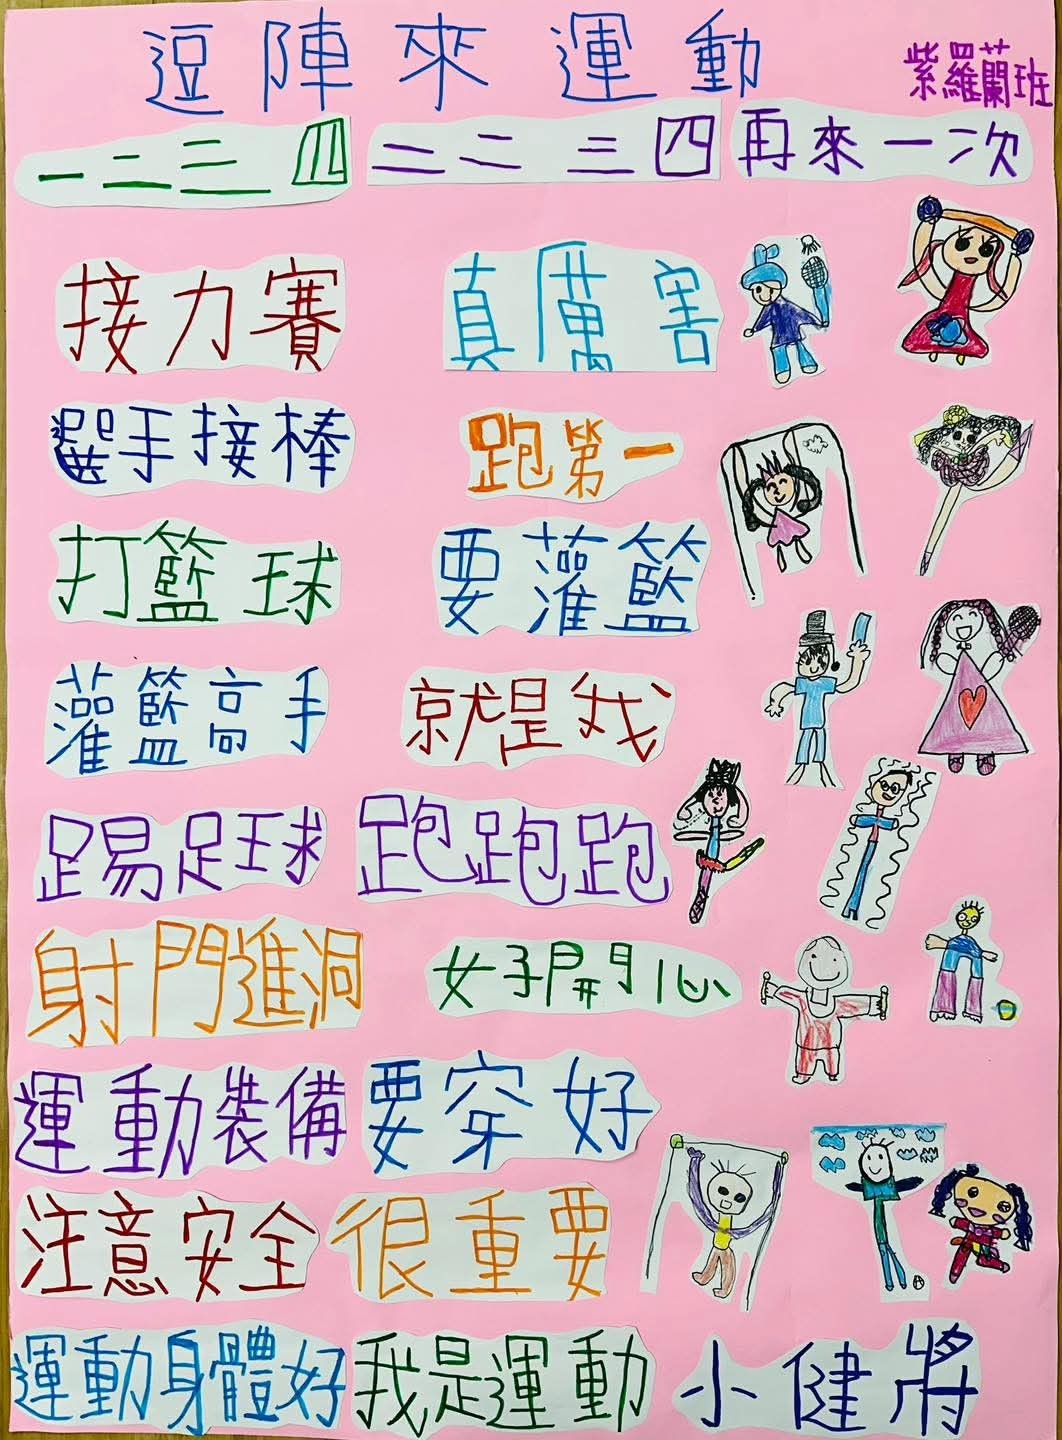 逗陣來運動
紫羅蘭班
一二三四 二二三四 再來一次
接力賽 真厲害
選手接棒 跑第一
打籃球 要灌籃
灌籃高手 就是我
踢足球 跑跑跑
射門進洞 好開心
運動裝備 要穿好
注意安全 很重要
運動身體好 我是運動 小健將